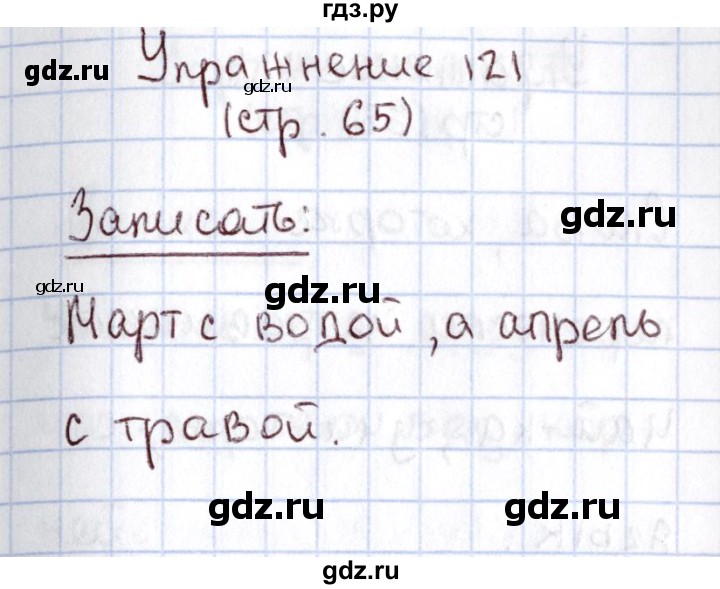 гдз.ру
Упражнение 121
gdz.ru
gdz.ru
(стр. 65)
Записать:
gdz.ru
gdz.ru
gdz.ru
Март с водой, а апрель
с травой.
gdz.ru
gdz.ru
gdz.ru